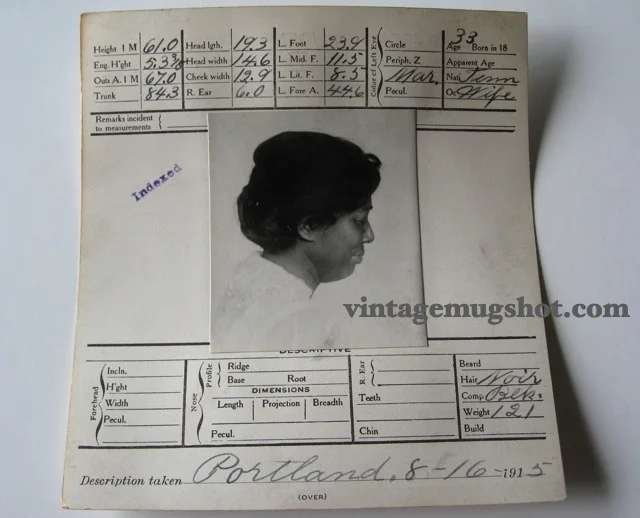 Height 1 M 61.0 Head lgth. 19.3 L. Foot 23.9 Circle Age 33 Born in 18
Eng. H'ght 5.3 Head width 14.6 L. Mid. F. 11.5 Periph. Z Apparent Age
Outs A. 1 M 67.0 Cheek width 12.9 L. Lit. F. 8.5 Mar. Nati Tenn
Trunk 84.3 R. Ear 6.0 L. Fore A. 44.6 Color of Left Eye Pecul. Oc Wife
Remarks incident
to measurements
Indexed
vintagemugshot.com
DESCRIPTIVE
Forehead Incln. Nose Profile Ridge R. Ear Beard
H'ght Base Root Hair Noir
Width DIMENSIONS Teeth Comp Blk.
Pecul. Length Projection Breadth Weight 121
Pecul. Chin Build
Description taken Portland, 8-16-1915
(OVER)